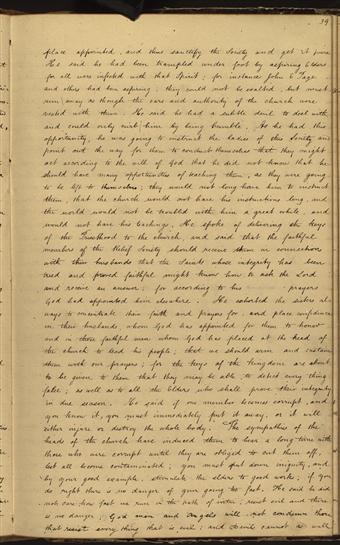 39
place appointed, and thus sanctify the Society and get it pure
He said he had been trampled under foot by aspiring Elders
for all were infected with that Spirit; for instance John E Page
and others had been aspiring; they could not be exalted, but must
run away as though the care and authority of the church were
vested with them. He said he had a subtle devil to deal with
and could only curb him by being humble. As he had this
opportunity, he was going to instruct the ladies of this Society and
point out the way for them to conduct themselves that they might
act according to the will of God that he did not know that he
should have many opportunities of teaching them, as they were going
to be left to themselves; they would not long have him to instruct
them, that the church would not have his instructions long, and
the world would not be troubled with him a great while, and
would not have his teachings. He spoke of delivering the keys
of the Priesthood to the church, and said that the faithful
members of the Relief Society should receive them in connexion
with their husbands that the Saints whose integrity has been
tried and proved faithful might know how to ask the Lord
and receive an answer; for according to his prayers
God had appointed him elsewhere. He exhorted the sisters al-
ways to concentrate their faith and prayers for, and place confidence
in their husbands, whom God has appointed for them to honor
and in those faithful men whom God has placed at the head of
the church to lead his people; that we should arm and sustain
them with our prayers; for the keys of the Kingdom are about
to be given to them that they may be able to detect every thing
false; as well as to all the Elders who shall prove their integrity
in due season. He said if one member becomes corrupt, and
you know it, you must immediately put it away, or it will
either injure or destroy the whole body. The sympathies of the
heads of the church have induced them to bear a long time with
those who were corrupt until they are obliged to cut them off,
lest all become contaminated; you must put down iniquity, and
by your good example, stimulate the elders to good works; if you
do right there is no danger of your going to fast. He said he did
not care how fast we run in the path of virtue; resist evil and there
is no danger; God man and angels will not condemn those
that resist every thing that is evil; and devils cannot as well